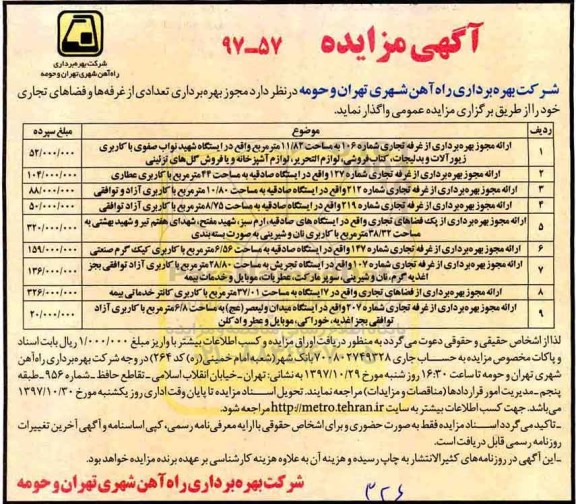 آگهی مزایده ۵۷-۹۷
شرکت بهره‌برداری
راه‌آهن شهری تهران و حومه
شرکت بهره‌برداری راه‌آهن شهری تهران و حومه در نظر دارد مجوز بهره‌برداری تعدادی از غرفه‌ها و فضاهای تجاری
خود را از طریق برگزاری مزایده عمومی واگذار نماید.
ردیف موضوع مبلغ سپرده
۱ ارائه مجوز بهره‌برداری از غرفه تجاری شماره ۱۰۶ به مساحت ۱۱/۸۲ مترمربع واقع در ایستگاه شهید نواب صفوی با کاربری
زیورآلات و بدلیجات، کتاب‌فروشی، لوازم التحریر، لوازم آشپزخانه و یا فروش گل‌های تزئینی ۵۲/۰۰۰/۰۰۰
۲ ارائه مجوز بهره‌برداری از غرفه تجاری شماره ۱۲۷ واقع در ایستگاه صادقیه به مساحت ۴۴ مترمربع با کاربری عطاری ۱۰۴/۰۰۰/۰۰۰
۳ ارائه مجوز بهره‌برداری از غرفه تجاری شماره ۲۱۲ واقع در ایستگاه صادقیه به مساحت ۱۰/۸۰ مترمربع با کاربری آزاد و توافقی ۸۸/۰۰۰/۰۰۰
۴ ارائه مجوز بهره‌برداری از غرفه تجاری شماره ۲۱۹ واقع در ایستگاه صادقیه به مساحت ۸/۷۵ مترمربع با کاربری آزاد توافقی ۵۰/۰۰۰/۰۰۰
۵ ارائه مجوز بهره‌برداری از پک فضاهای تجاری واقع در ایستگاه های صادقیه، ارم سبز، شهید مفتح، شهدای هفتم تیر و شهید بهشتی به
مساحت ۳۸/۳۲ مترمربع با کاربری نان و شیرینی به صورت بسته‌بندی ۳۲۰/۰۰۰/۰۰۰
۶ ارائه مجوز بهره‌برداری از غرفه تجاری شماره ۱۴۷ واقع در ایستگاه صادقیه به مساحت ۶/۵۶ مترمربع با کاربری کیک گرم صنعتی ۱۵۹/۰۰۰/۰۰۰
۷ ارائه مجوز بهره‌برداری از غرفه تجاری شماره ۱۰۷ واقع در ایستگاه تجریش به مساحت ۲۸/۸۰ مترمربع با کاربری آزاد توافقی بجز
اغذیه گرم، نان و شیرینی، سوپرمارکت، عطریات، موبایل و خدمات بیمه ۱۳۶/۰۰۰/۰۰۰
۸ ارائه مجوز بهره‌برداری از فضاهای تجاری واقع در ۷ ایستگاه به مساحت ۳۷/۰۱ مترمربع با کاربری کانتر خدماتی بیمه ۳۲۶/۰۰۰/۰۰۰
۹ ارائه مجوز بهره‌برداری از غرفه تجاری شماره ۲۰۷ واقع در ایستگاه میدان ولیعصر(عج) به مساحت ۶/۸ مترمربع با کاربری آزاد
توافقی بجز اغذیه، خوراکی، موبایل و عطر و ادکلن ۲۰/۰۰۰/۰۰۰
لذا از اشخاص حقیقی و حقوقی دعوت می‌گردد به منظور دریافت اوراق مزایده و کسب اطلاعات بیشتر با واریز مبلغ ۱/۰۰۰/۰۰۰ ریال بابت اسناد
و پاکات مخصوص مزایده به حساب جاری ۷۰۰۸۰۲۷۴۹۳۲۸ بانک شهر (شعبه امام خمینی (ره) کد ۲۶۴) در وجه شرکت بهره‌برداری راه‌آهن
شهری تهران و حومه تا ساعت ۱۶:۳۰ روز شنبه مورخ ۱۳۹۷/۱۰/۲۹ به نشانی: تهران - خیابان انقلاب اسلامی - تقاطع حافظ - شماره ۹۵۶ - طبقه
پنجم - مدیریت امور قراردادها (مناقصات و مزایدات) مراجعه نمایند. تحویل اسناد مزایده تا پایان وقت اداری روز یکشنبه مورخ ۱۳۹۷/۱۰/۳۰
می‌باشد. جهت کسب اطلاعات بیشتر به سایت http://metro.tehran.ir مراجعه شود.
ـ تاکید می‌گردد اسناد مزایده فقط به صورت حضوری و برای اشخاص حقوقی با ارایه معرفی‌نامه رسمی، کپی اساسنامه و آگهی آخرین تغییرات
روزنامه رسمی قابل دریافت است.
ـ این آگهی در روزنامه‌های کثیرالانتشار به چاپ رسیده و هزینه آن به علاوه هزینه کارشناسی بر عهده برنده مزایده خواهد بود.
شرکت بهره‌برداری راه‌آهن شهری تهران و حومه
۳۲۶